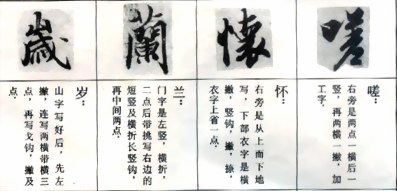 嗟
嗟：
右旁是两点一横后一
竖，再两横一撇，加
工字。
懷
怀：
右旁是从上而下地
写，下部衣字是横
撇，竖钩，撇，捺，
衣字上省一点。
蘭
兰：
门字是左竖，横折，
二点后带挑写右边的
短竖及横折长竖钩，
再中间两点。
歲
岁：
山字写好后，先左
撇，连写两横带三
点，再写戈钩，撇及
点。